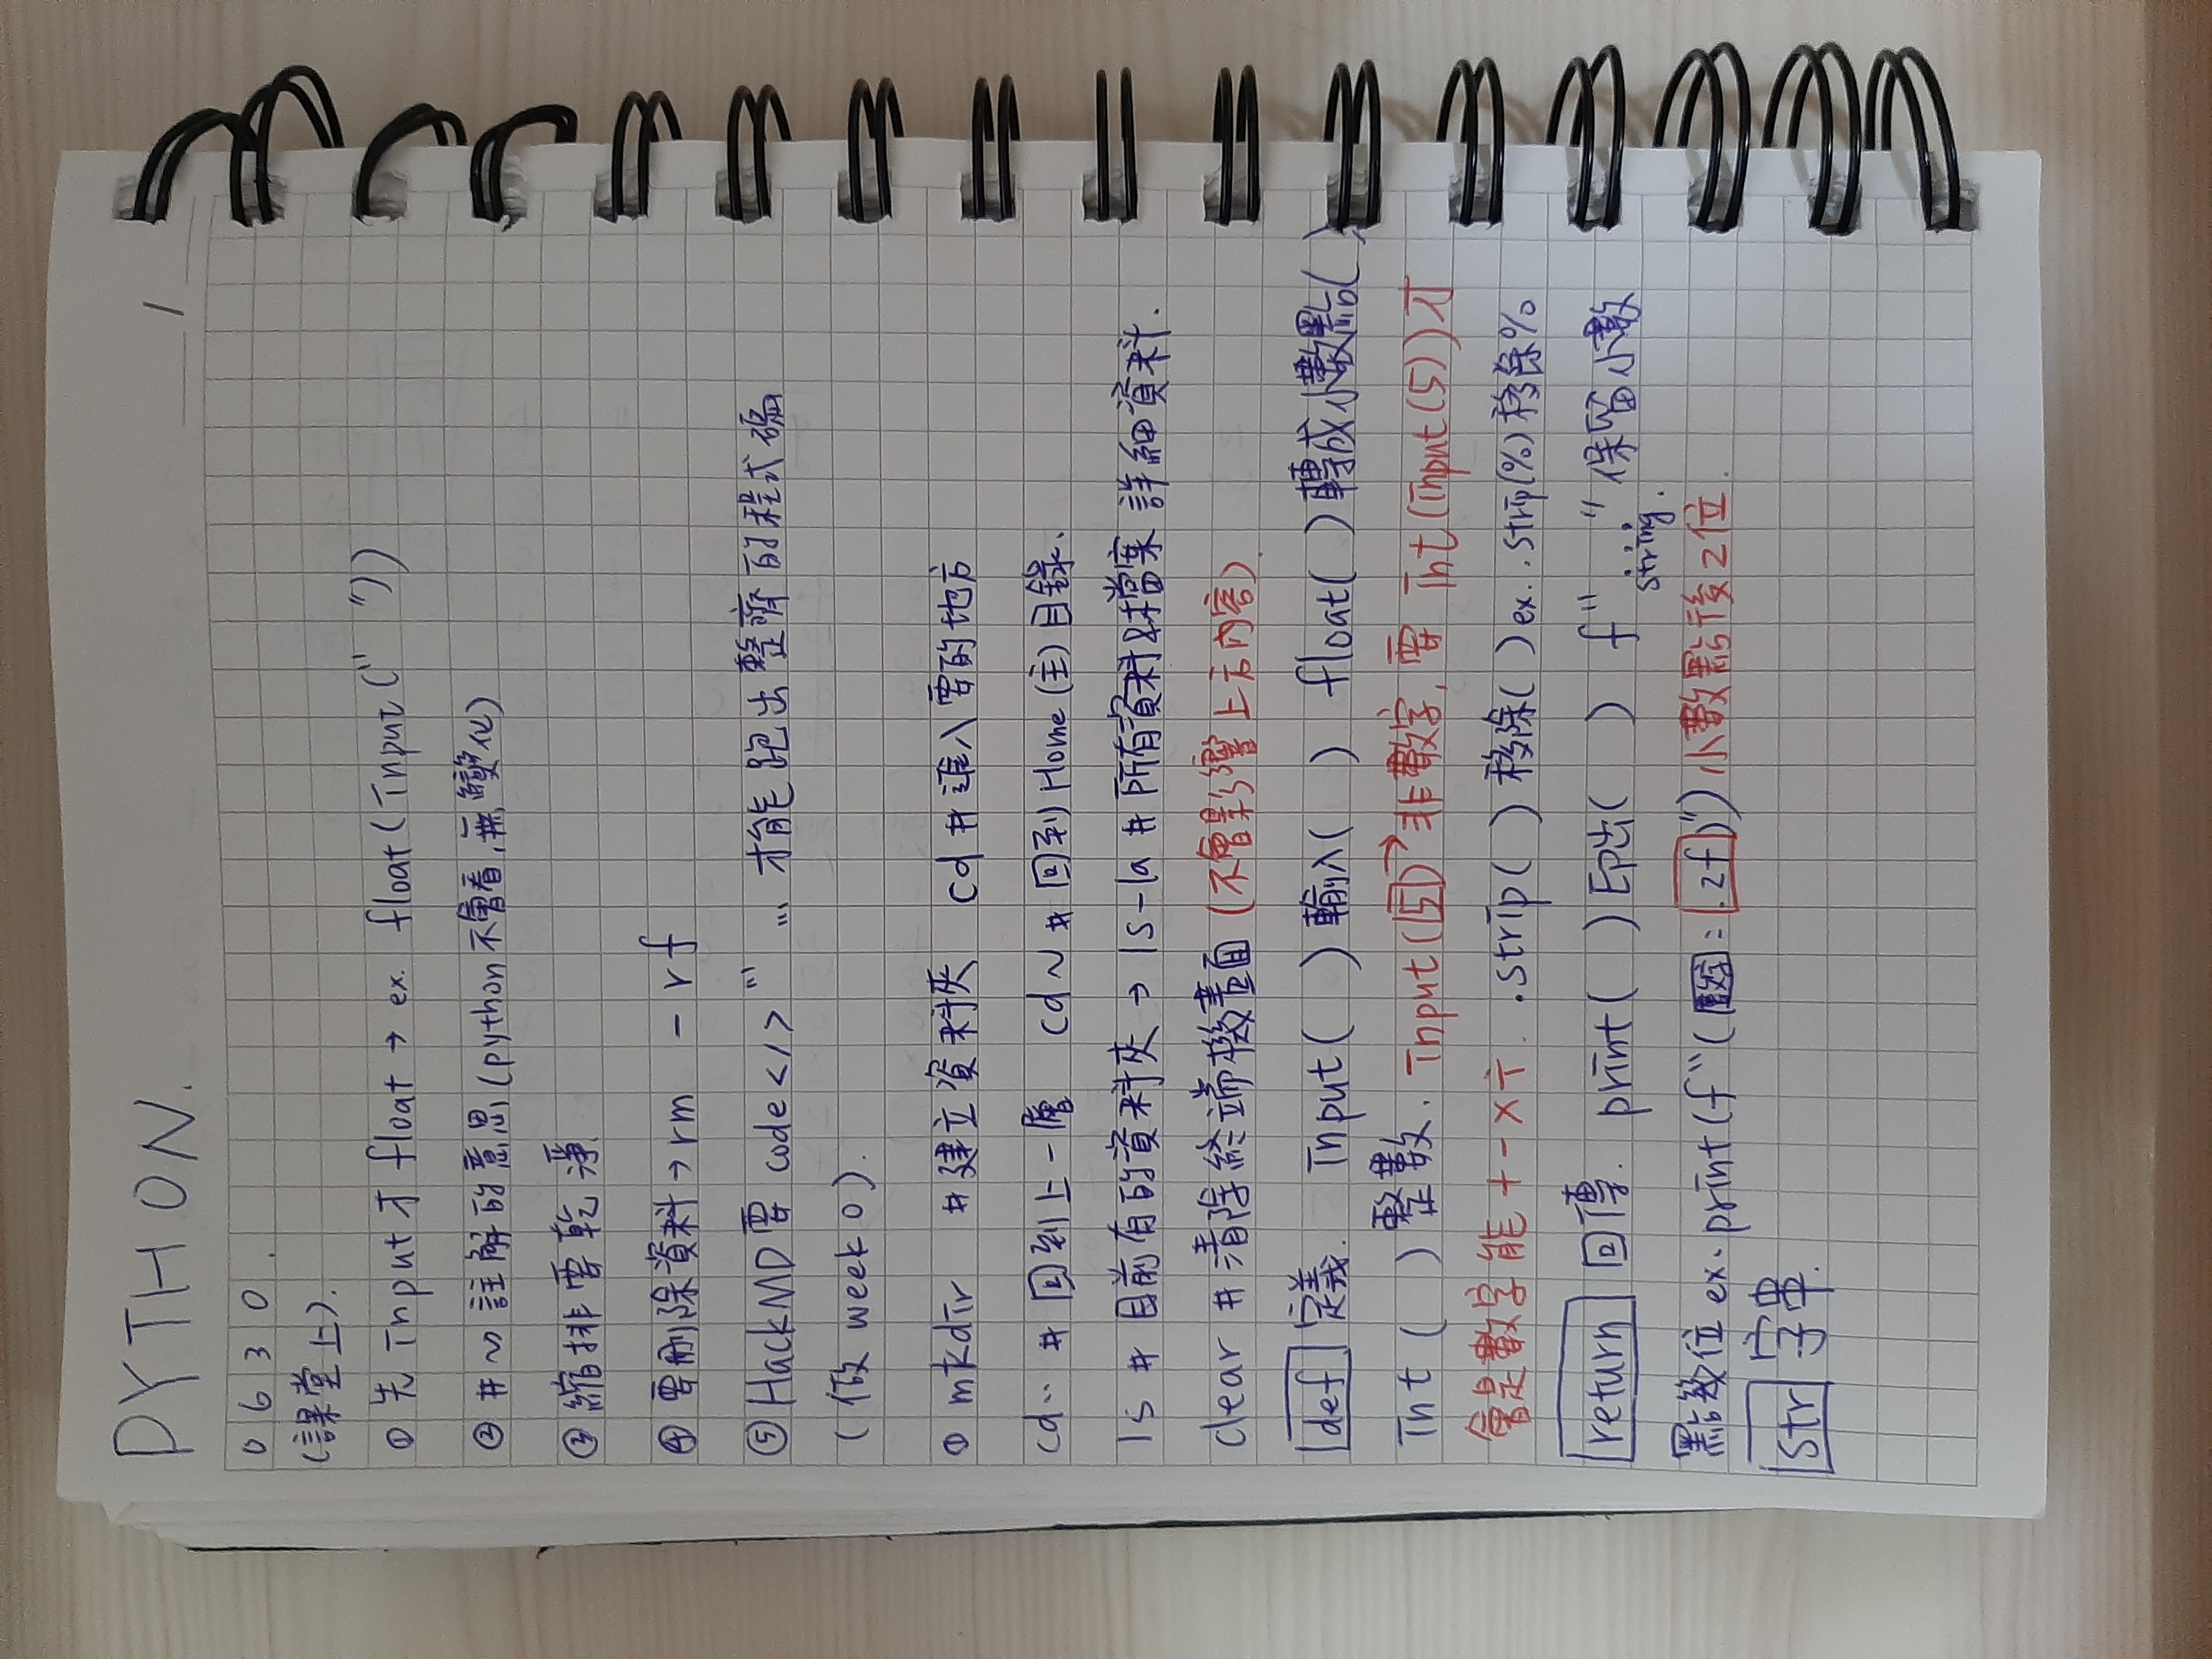 PYTHON.
1
0630.
(課堂上).
① 先 input 才 float → ex. float(input("  "))
② # ~ 註解的意思(python 不會看,無變化)
③ 縮排要乾淨
④ 要刪除資料→rm -rf
⑤ HackMD 要 code </> ''' ... 才能跑出整齊的程式碼
(做 week 0).
① mkdir #建立資料夾 cd #進入要的地方
cd.. #回到上一層 cd~ #回到Home(主)目錄.
ls #目前有的資料夾→ls-la #所有資料&檔案詳細資料.
clear #清除終端機畫面(不會影響上方內容)
def 定義. input( )輸入( ) float( )轉成小數點( )
int( )整數. input(5)→非數字,要 int(input(5))才
會是數字能+-×÷. .strip( )移除( )ex. .strip(%)移除%
return 回傳. print( )印出( ) f"..."保留小數
string.
點幾位 ex. print(f"(數字:.2f)")小數點後2位.
str 字串.